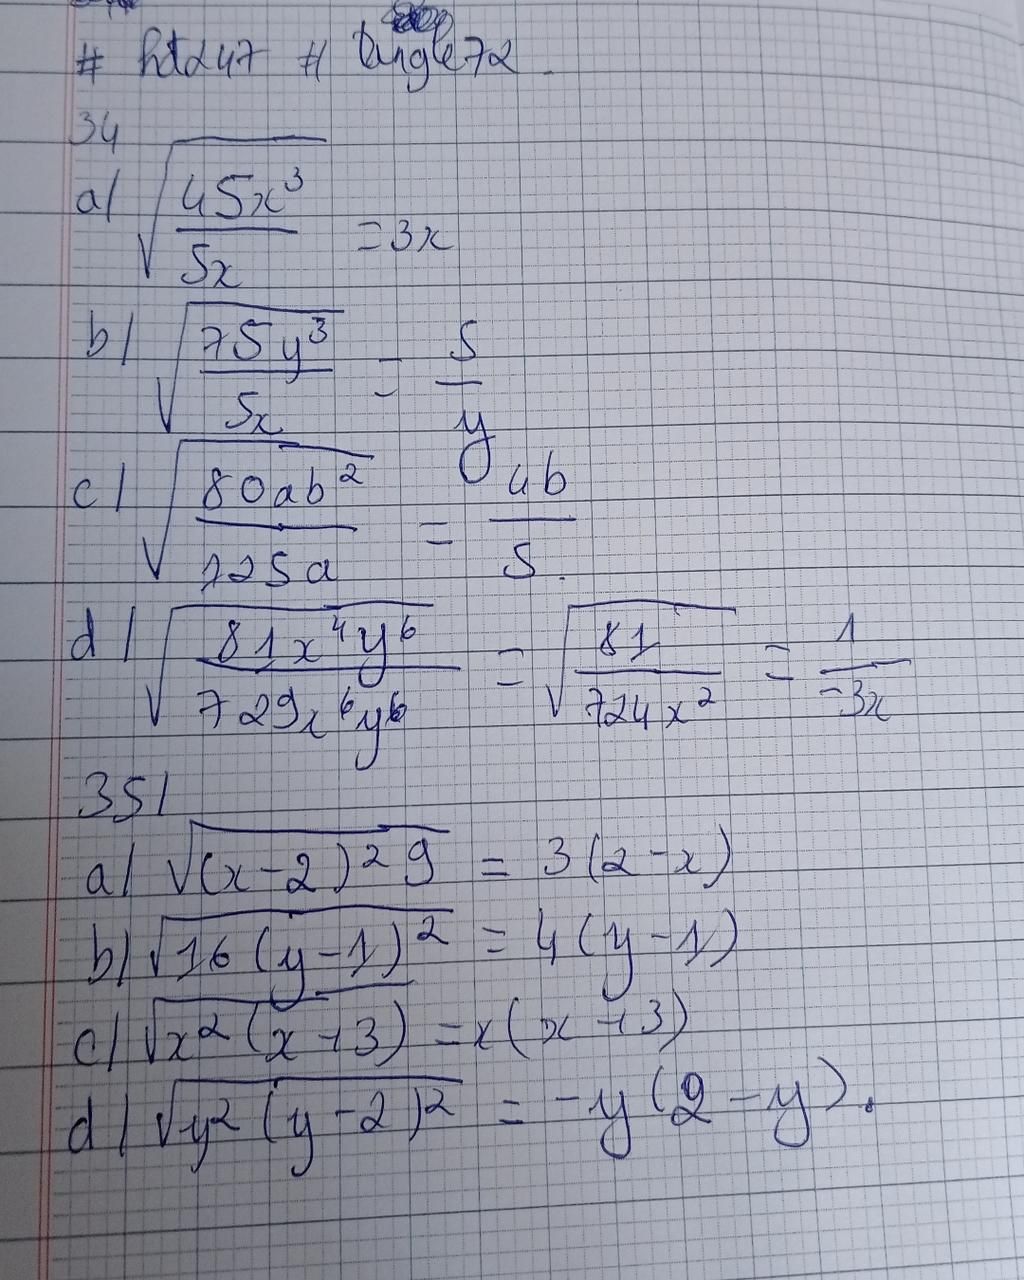 # htd247 # tangle72
34
a/ √(45x³/5x) = 3x
b/ √(75y³/5x) = 5/y
c/ √(80ab²/125a) = 4b/5.
d/ √(81x⁴y⁶/729x⁶y⁶) = √(81/724x²) = 1/-3x
35/
a/ √(x-2)² 9 = 3(2-x)
b/ √16(y-1)² = 4(y-1)
c/ √x²(x+3) = x(x+3)
d/ √y²(y-2)² = -y(2-y).